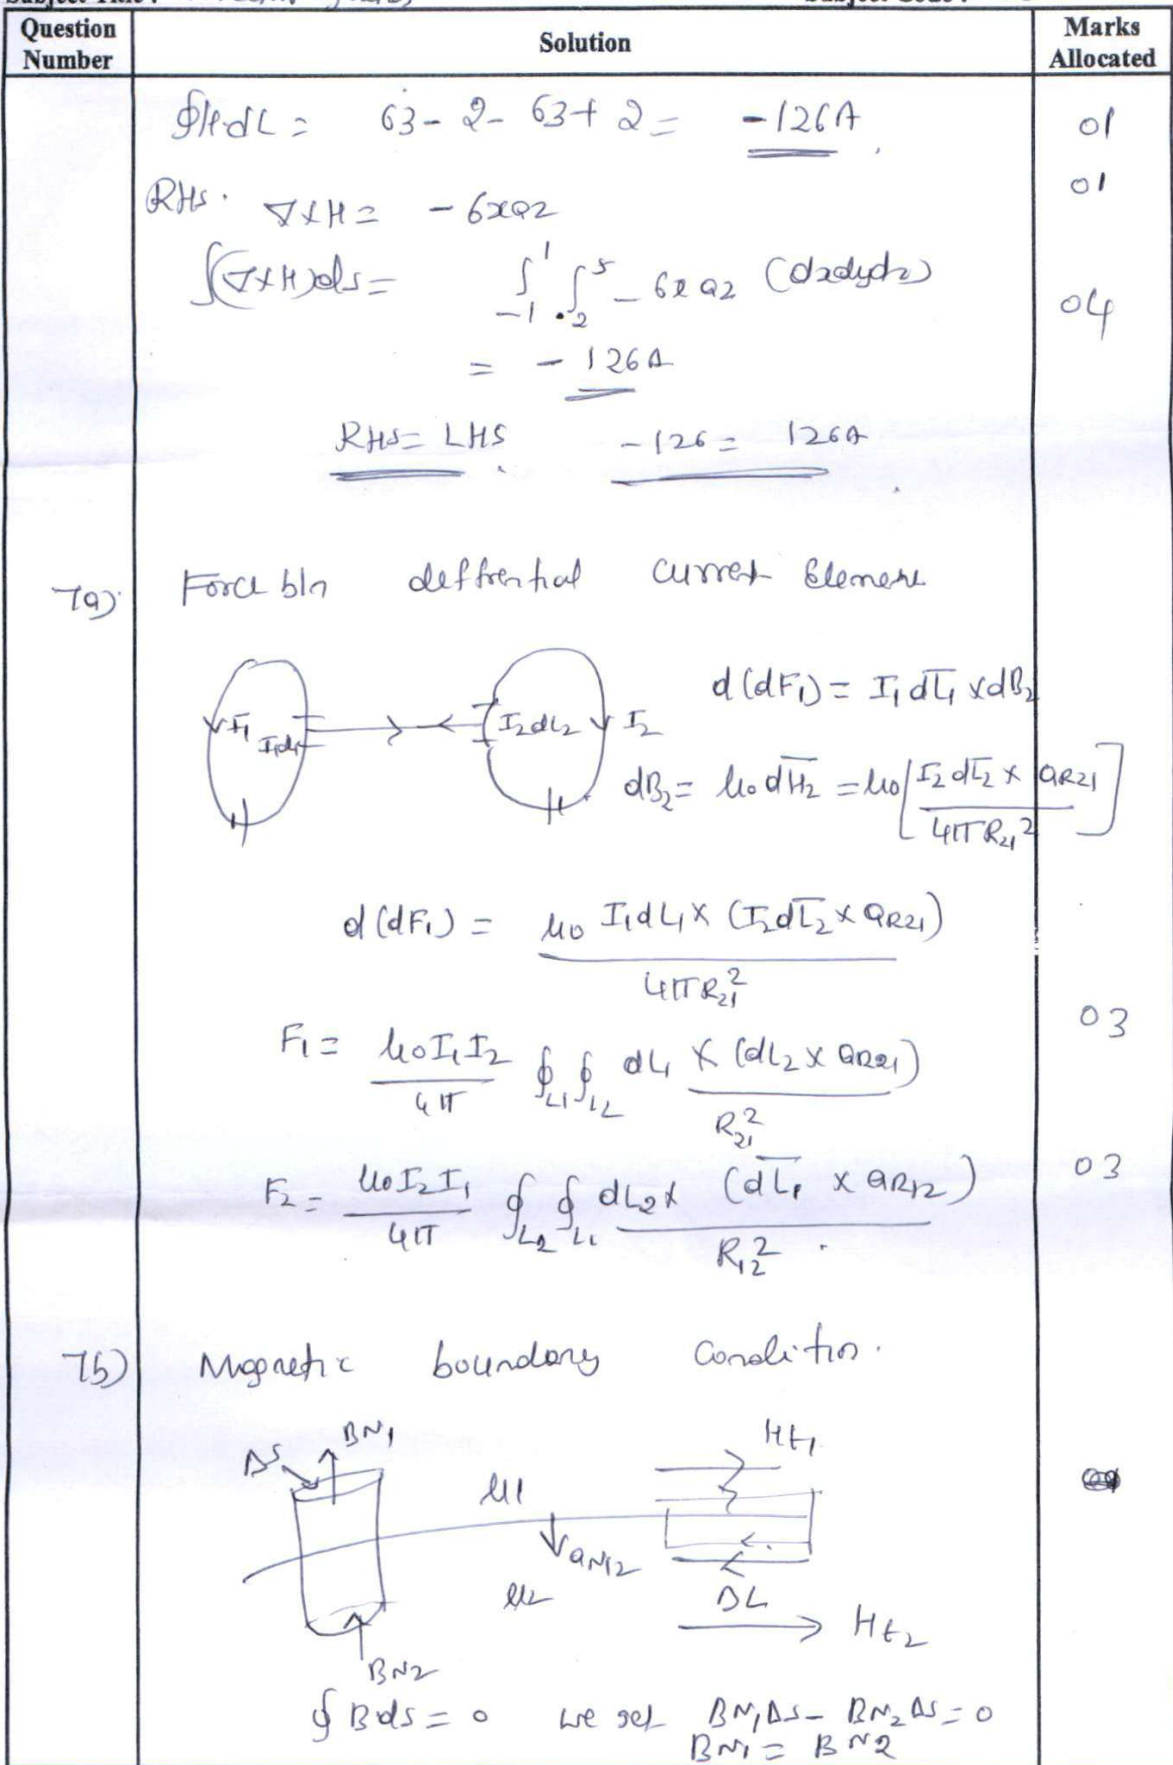 Question Number
Solution
Marks Allocated
∮H·dL = 63 - 2 - 63 + 2 = -126A.
01
RHS. ∇×H = -6xaz
01
∫(∇×H)ds = ∫₋₁¹ ∫₂⁵ -6xaz (dxdydz)
04
= -126A
RHS = LHS -126 = 126A
7a) Force b/n deffrential current Element
I1dL1 I2dL2 I2
d(dF1) = I1dL1 × dB2
dB2 = μ0 dH2 = μ0 [I2dL2 × aR21 / 4πR21²]
d(dF1) = μ0 I1dL1 × (I2dL2 × aR21) / 4πR21²
F1 = μ0I1I2 / 4π ∮L1 ∮L2 dL1 × (dL2 × aR21) / R21²
03
F2 = μ0I2I1 / 4π ∮L2 ∮L1 dL2 × (dL1 × aR12) / R12².
03
7b) Magnetic boundary Condition.
ΔS BN1 Ht1
μ1
aN12
μ2 ΔL
Ht2
BN2
∮Bds = 0 we get BN1ΔS - BN2ΔS = 0
BN1 = BN2